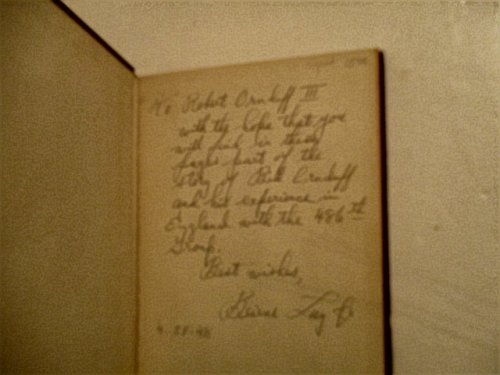 To Robert Ornduff III
with the hope that you
will find in these
pages part of the
story of Ornduff
and his experience in
England with the 486th
Group.
Best wishes,
Beirne Lay Jr